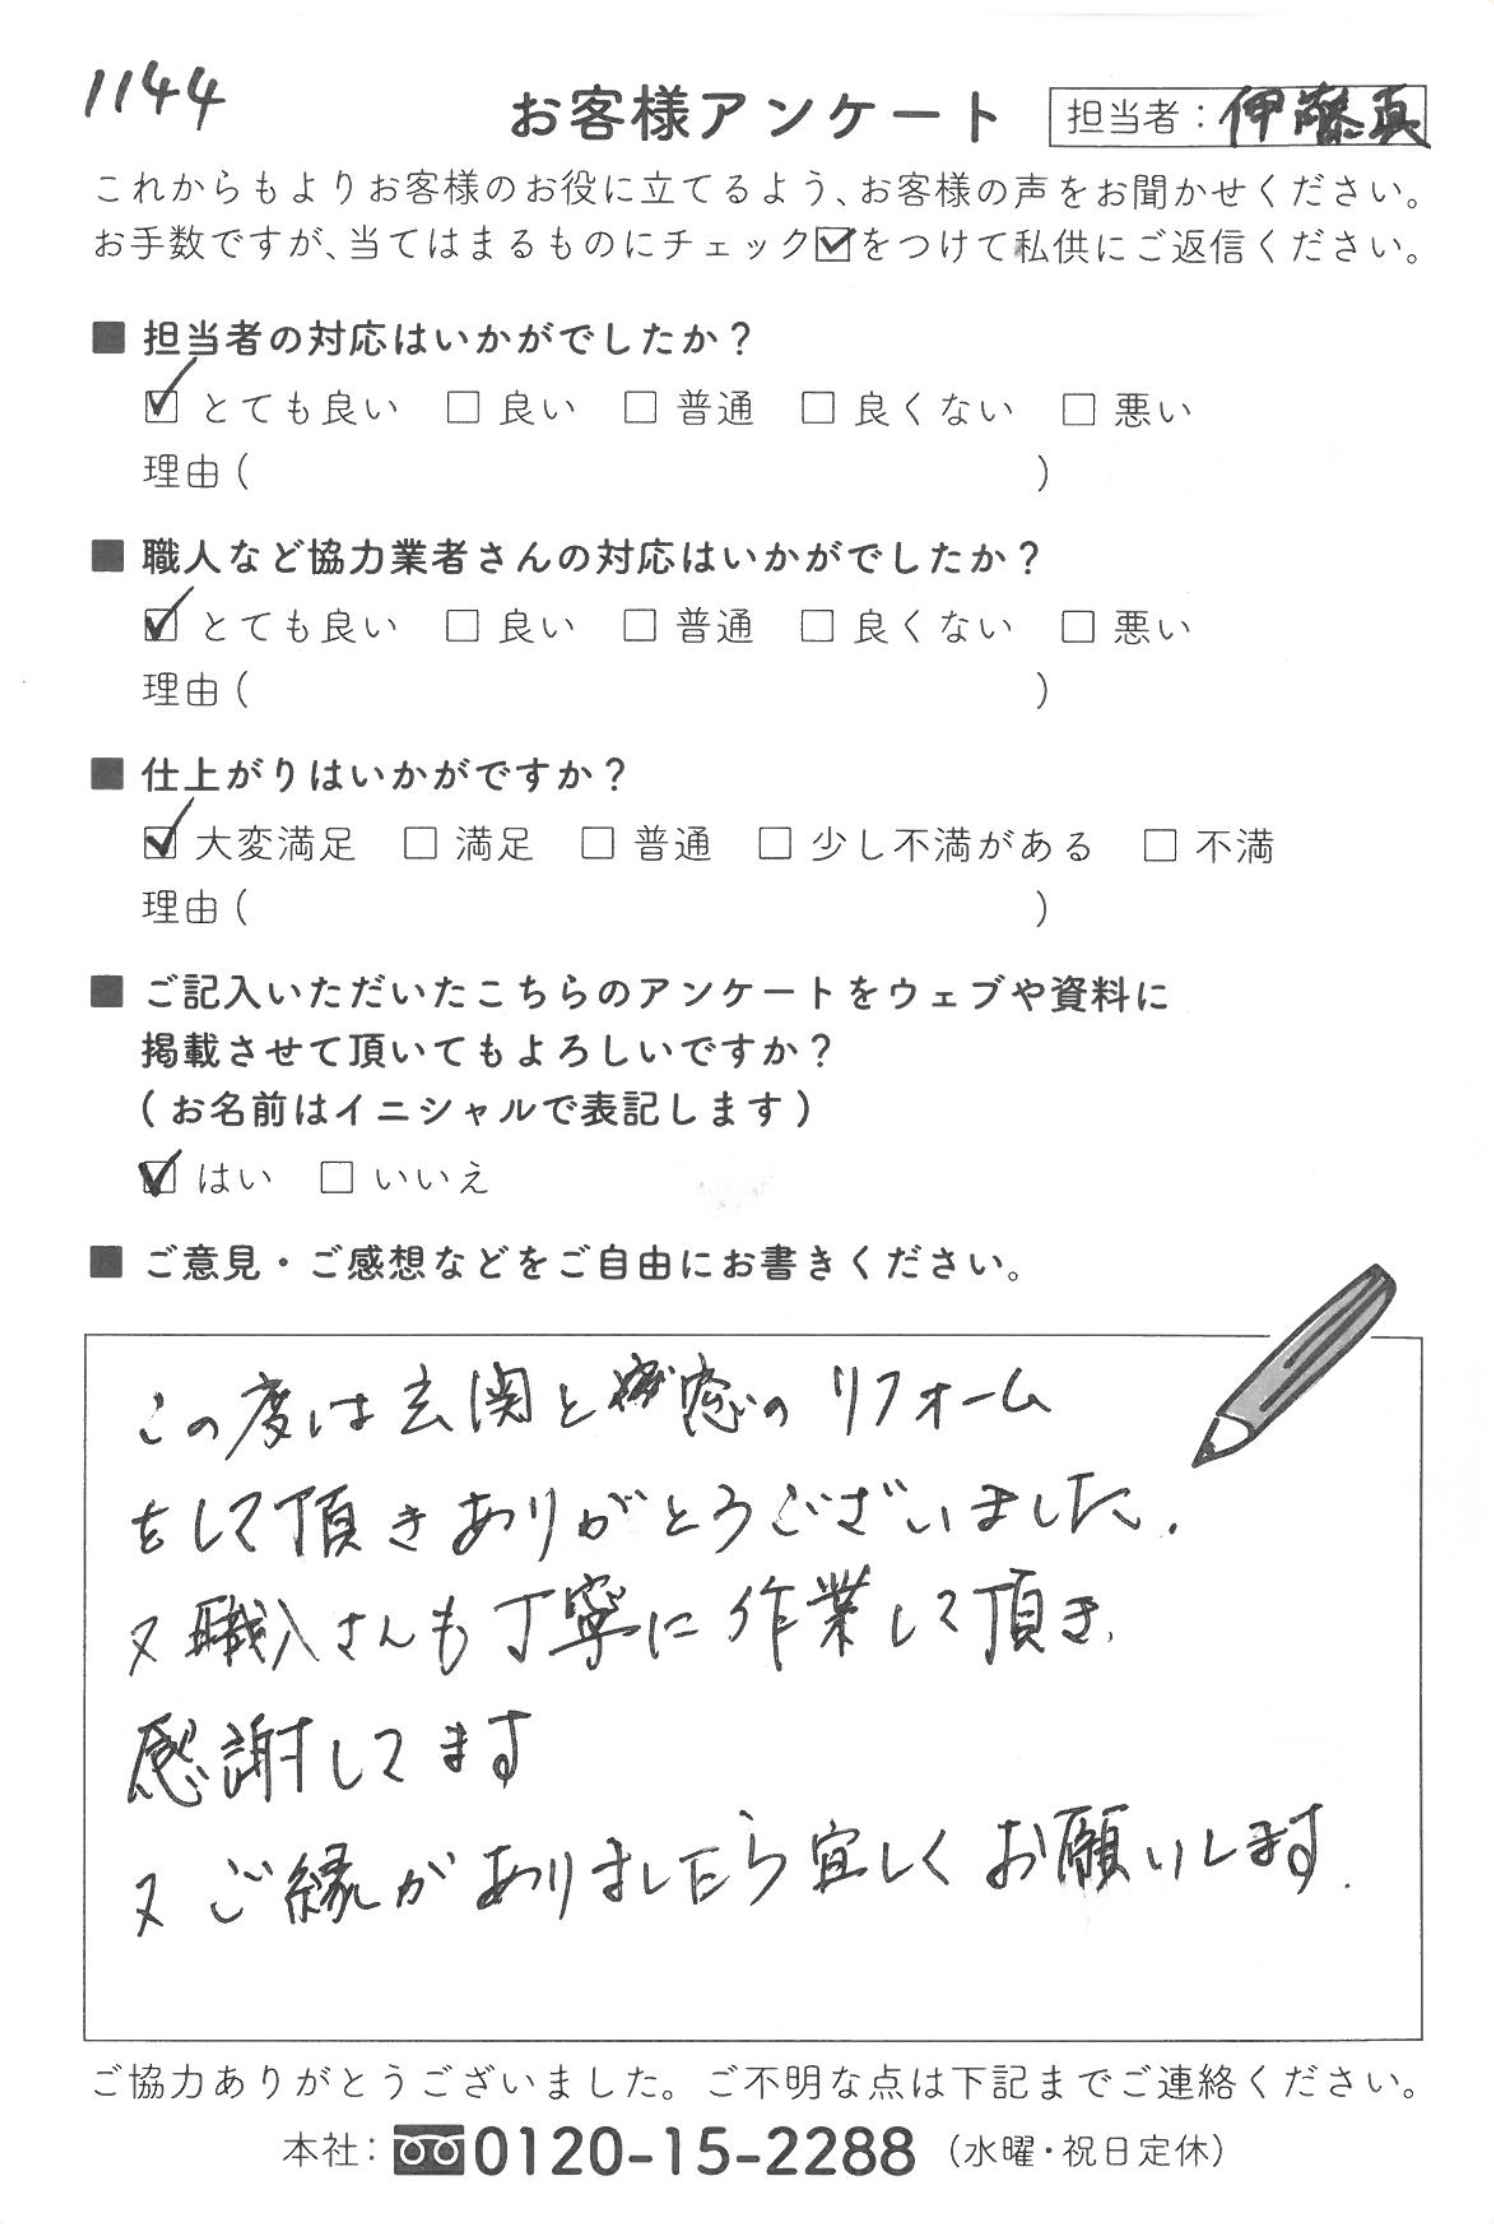 1144
お客様アンケート 担当者：伊藤真
これからもよりお客様のお役に立てるよう、お客様の声をお聞かせください。
お手数ですが、当てはまるものにチェック☑をつけて私供にご返信ください。
■ 担当者の対応はいかがでしたか？
☑ とても良い □ 良い □ 普通 □ 良くない □ 悪い
理由（ ）
■ 職人など協力業者さんの対応はいかがでしたか？
☑ とても良い □ 良い □ 普通 □ 良くない □ 悪い
理由（ ）
■ 仕上がりはいかがですか？
☑ 大変満足 □ 満足 □ 普通 □ 少し不満がある □ 不満
理由（ ）
■ ご記入いただいたこちらのアンケートをウェブや資料に
掲載させて頂いてもよろしいですか？
（お名前はイニシャルで表記します）
☑ はい □ いいえ
■ ご意見・ご感想などをご自由にお書きください。
この度は玄関と窓のリフォーム
をして頂きありがとうございました.
又職人さんも丁寧に作業して頂き、
感謝してます
又ご縁がありましたら宜しくお願いします.
ご協力ありがとうございました。ご不明な点は下記までご連絡ください。
本社：0120-15-2288（水曜・祝日定休）